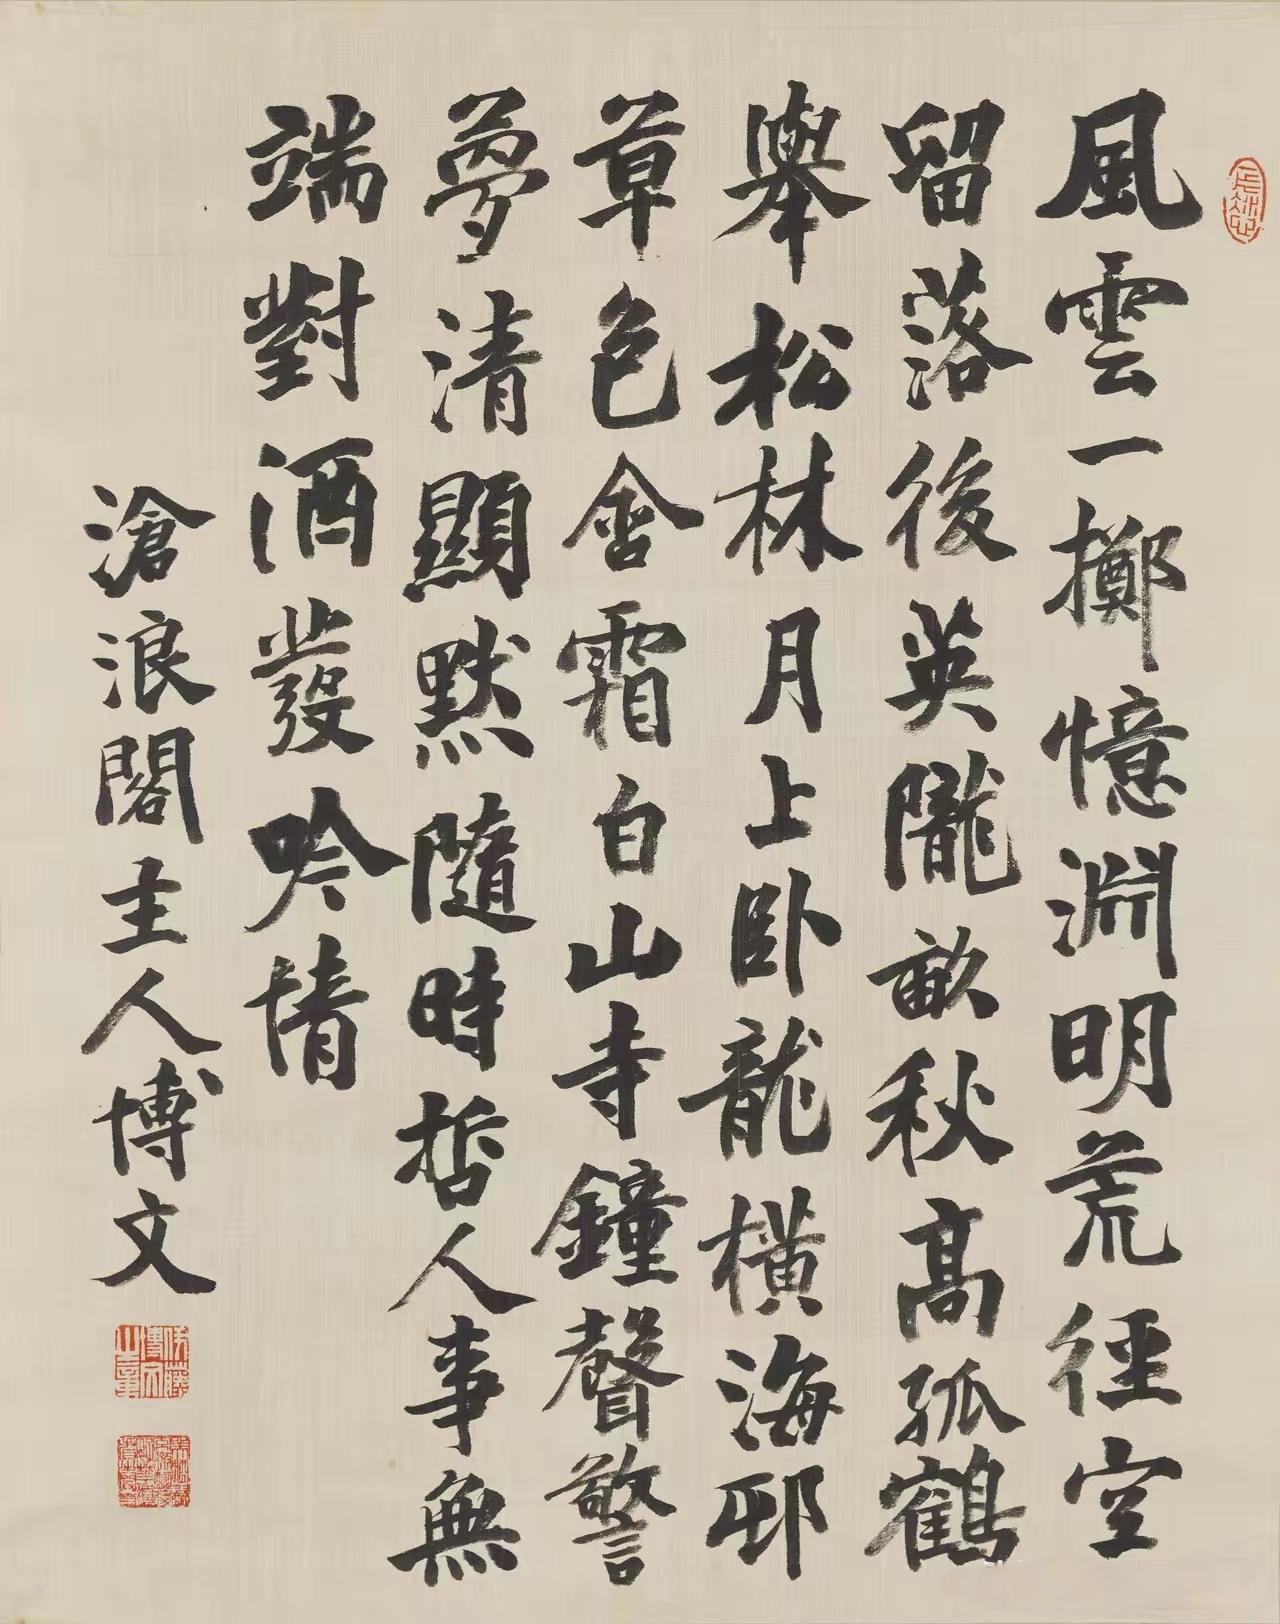 風雲一擲憶淵明荒徑空
留落後英隴畝秋高孤鶴
舉松林月上臥龍橫海邨
草色含霜白山寺鐘聲警
夢清顯默隨時哲人事無
端對酒發吟情
滄浪閣主人博文
伊藤博文之章